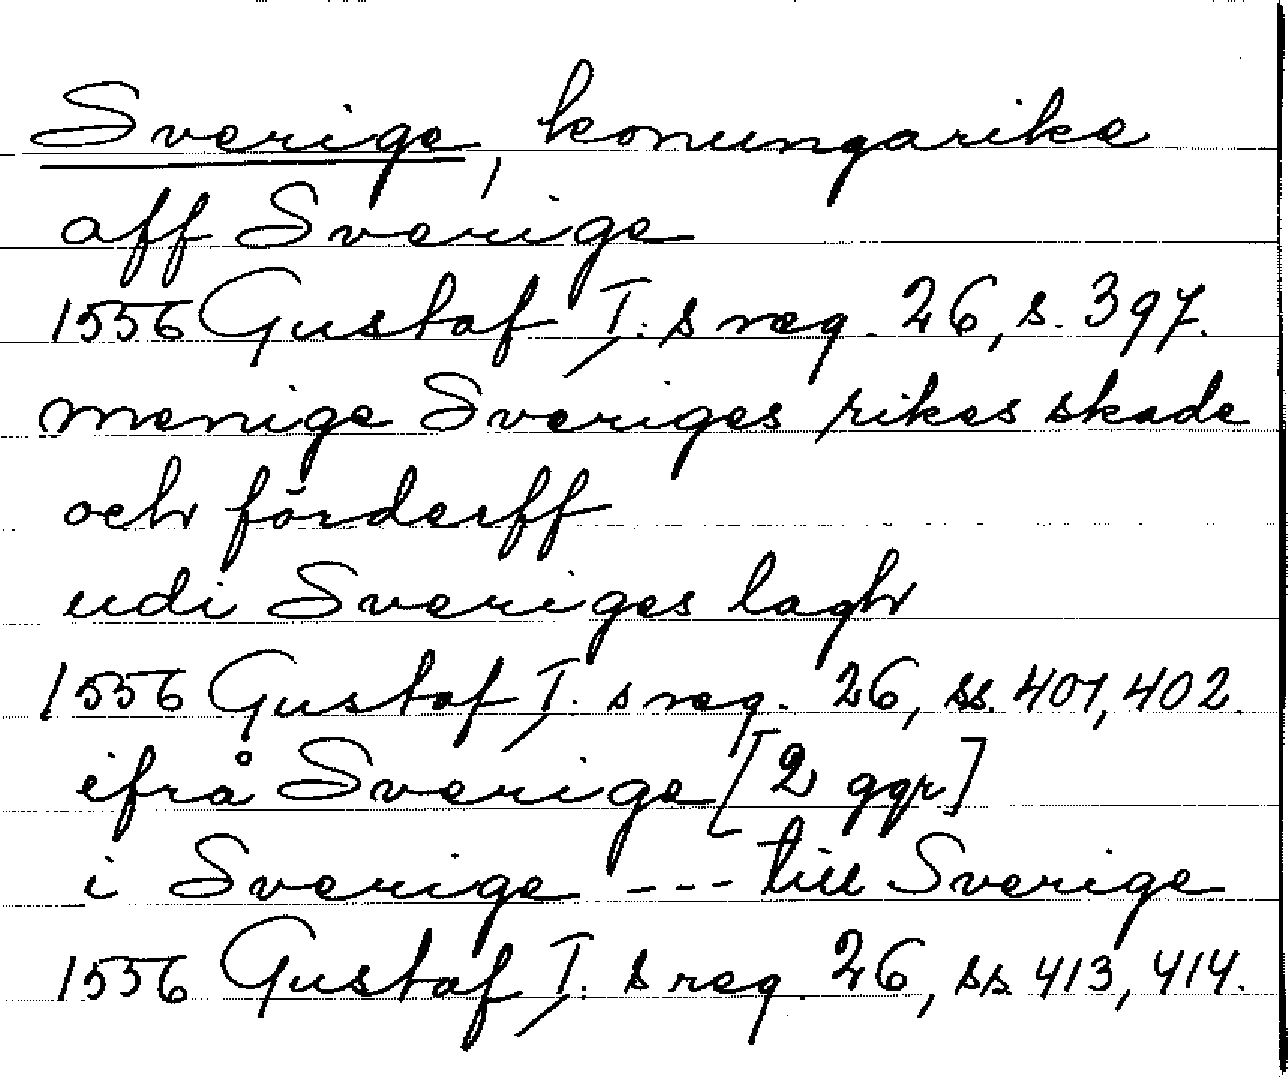 Sverige, konungarike
aff Sverige
1556 Gustaf I:s reg. 26, s. 397.
menige Sveriges rikes skade
och förderff
udi Sveriges lagh
1556 Gustaf I:s reg. 26, ss. 401, 402.
ifrå Sverige [2 ggr]
i Sverige --- till Sverige
1556 Gustaf I:s reg. 26, ss 413, 414.